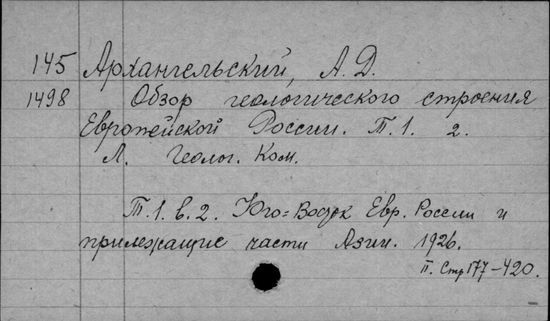 145 Архангельский, А. Д.
1498 Обзор геологического строения
Европейской России. Т. 1. 2.
Л. Геолог. Ком.
Т. 1. в. 2. Юго=Восток Евр. России и
прилежащие части Азии. 1926.
II. Стр 177-420.